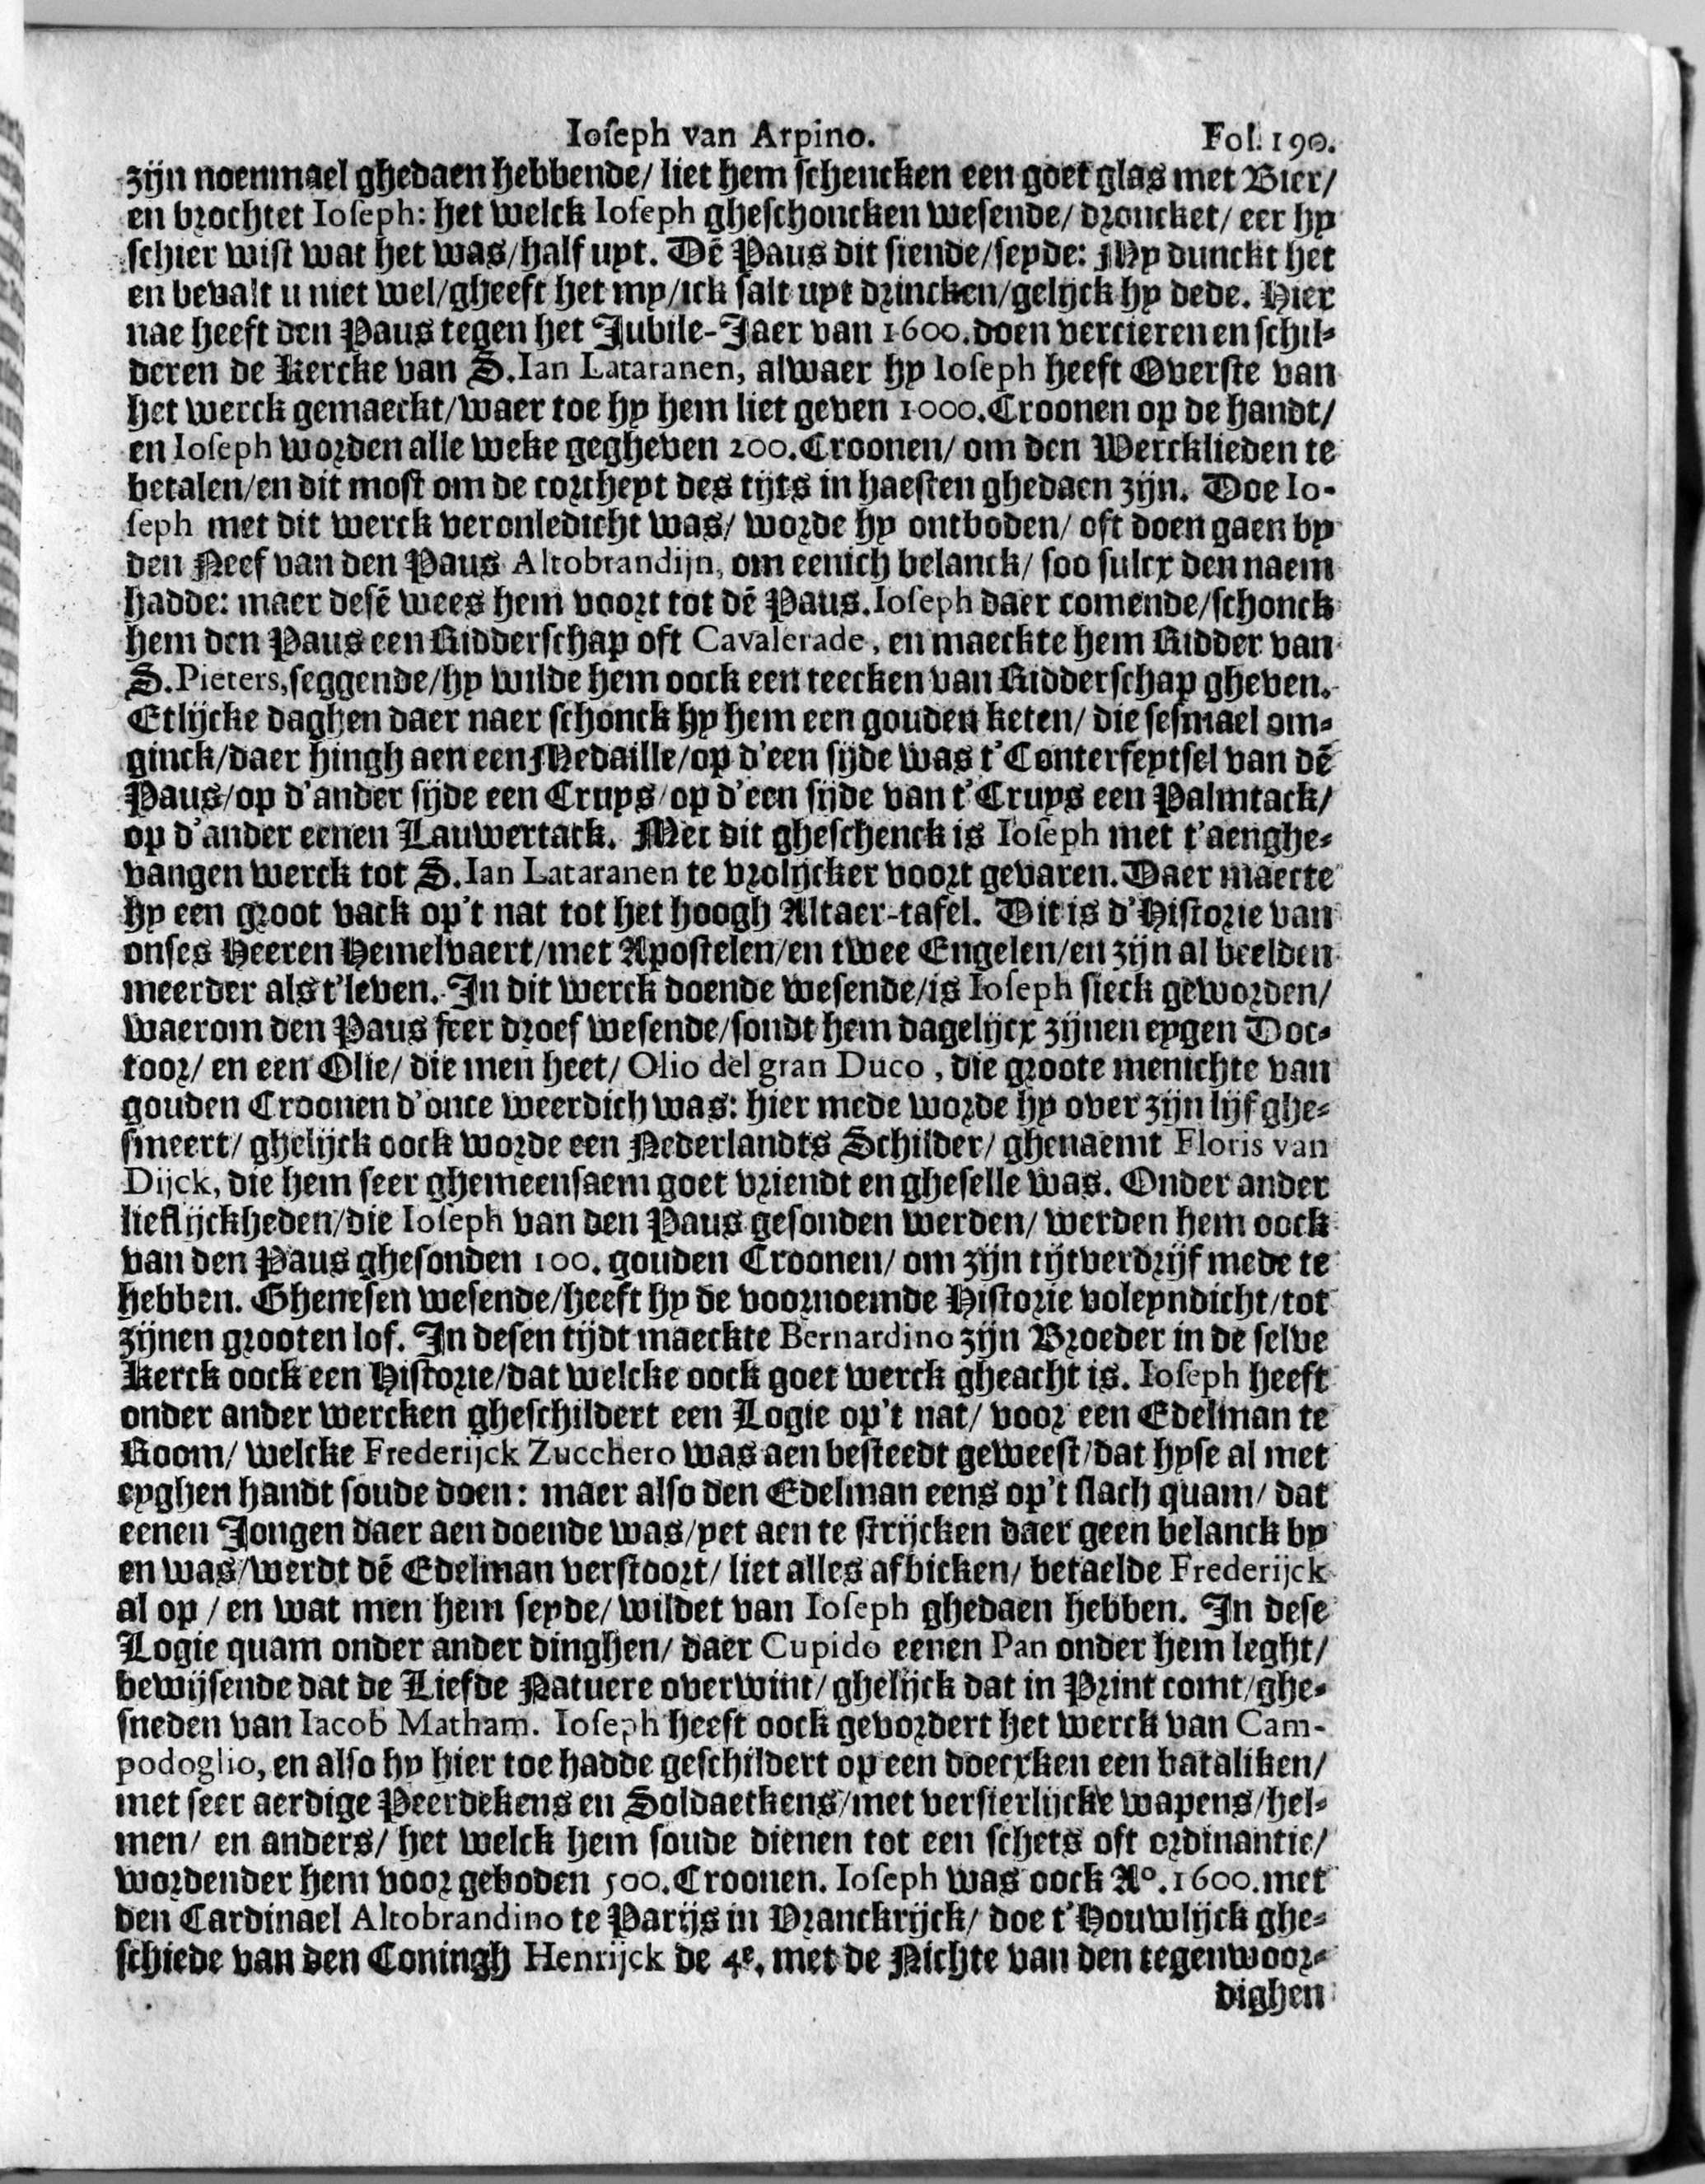 Ioseph van Arpino. Fol. 190.
zijn noenmael ghedaen hebbende/ liet hem schencken een goet glas met Bier/
en brochtet Ioseph: het welck Ioseph gheschoncken wesende/ droncket/ eer hy
schier wist wat het was/half uyt. Dē Paus dit siende/seyde: My dunckt het
en bevalt u niet wel/gheeft het my/ick salt uyt drincken/gelijck hy dede. Hier
nae heeft den Paus tegen het Jubile-Jaer van 1600.doen vercieren en schil-
deren de Kercke van S.Ian Lataranen, alwaer hy Ioseph heeft Overste van
het werck gemaeckt/waer toe hy hem liet geven 1000.Croonen op de handt/
en Ioseph worden alle weke gegheven 200.Croonen/ om den Wercklieden te
betalen/en dit most om de cortheyt des tijts in haesten ghedaen zijn. Doe Io-
seph met dit werck veronledicht was/ worde hy ontboden/ oft doen gaen by
den Neef van den Paus Altobrandijn, om eenich belanck/ soo sulcx den naem
hadde: maer desē wees hem voort tot dē Paus.Ioseph daer comende/schonck
hem den Paus een Ridderschap oft Cavalerade, en maeckte hem Ridder van
S.Pieters,seggende/hy wilde hem oock een teecken van Ridderschap gheven.
Etlijcke daghen daer naer schonck hy hem een gouden keten/ die sesmael om-
ginck/daer hingh aen een Medaille/op d'een sijde was t'Conterfeytsel van dē
Paus/op d'ander sijde een Cruys/op d'een sijde van t'Cruys een Palmtack/
op d'ander eenen Lauwertack. Met dit gheschenck is Ioseph met t'aenghe-
vangen werck tot S.Ian Lataranen te vrolijcker voort gevaren.Daer maecte
hy een groot vack op't nat tot het hoogh Altaer-tafel. Dit is d'Historie van
onses Heeren Hemelvaert/met Apostelen/en twee Engelen/en zijn al beelden
meerder als t'leven. In dit werck doende wesende/is Ioseph sieck geworden/
waerom den Paus seer droef wesende/sondt hem dagelijcx zijnen eygen Doc-
toor/ en een Olie/ die men heet/ Olio del gran Duco, die groote menichte van
gouden Croonen d'once weerdich was: hier mede worde hy over zijn lijf ghe-
smeert/ ghelijck oock worde een Nederlandts Schilder/ ghenaemt Floris van
Dijck, die hem seer ghemeensaem goet vriendt en gheselle was. Onder ander
lieflijckheden/die Ioseph van den Paus gesonden werden/ werden hem oock
van den Paus ghesonden 100. gouden Croonen/ om zijn tijtverdrijf mede te
hebben. Ghenesen wesende/heeft hy de voornoemde Historie voleyndicht/tot
zijnen grooten lof. In desen tijdt maeckte Bernardino zijn Broeder in de selve
Kerck oock een Historie/dat welcke oock goet werck gheacht is. Ioseph heeft
onder ander wercken gheschildert een Logie op't nat/ voor een Edelman te
Room/ welcke Frederijck Zucchero was aen besteedt geweest/dat hyse al met
eyghen handt soude doen: maer also den Edelman eens op't slach quam/ dat
eenen Jongen daer aen doende was/yet aen te strijcken daer geen belanck by
en was/werdt dē Edelman verstoort/ liet alles afbicken/ betaelde Frederijck
al op / en wat men hem seyde/ wildet van Ioseph ghedaen hebben. In dese
Logie quam onder ander dinghen/ daer Cupido eenen Pan onder hem leght/
bewijsende dat de Liefde Natuere overwint/ ghelijck dat in Print comt/ghe-
sneden van Iacob Matham. Ioseph heeft oock gevordert het werck van Cam-
podoglio, en also hy hier toe hadde geschildert op een doecxken een bataliken/
met seer aerdige Peerdekens en Soldaetkens/met versierlijcke wapens/hel-
men/ en anders/ het welck hem soude dienen tot een schets oft ordinantie/
wordender hem voor geboden 500.Croonen. Ioseph was oock Aº.1600.met
den Cardinael Altobrandino te Parijs in Vranckrijck/ doe t'Houwlijck ghe-
schiede van den Coningh Henrijck de 4e. met de Nichte van den tegenwoor-
dighen